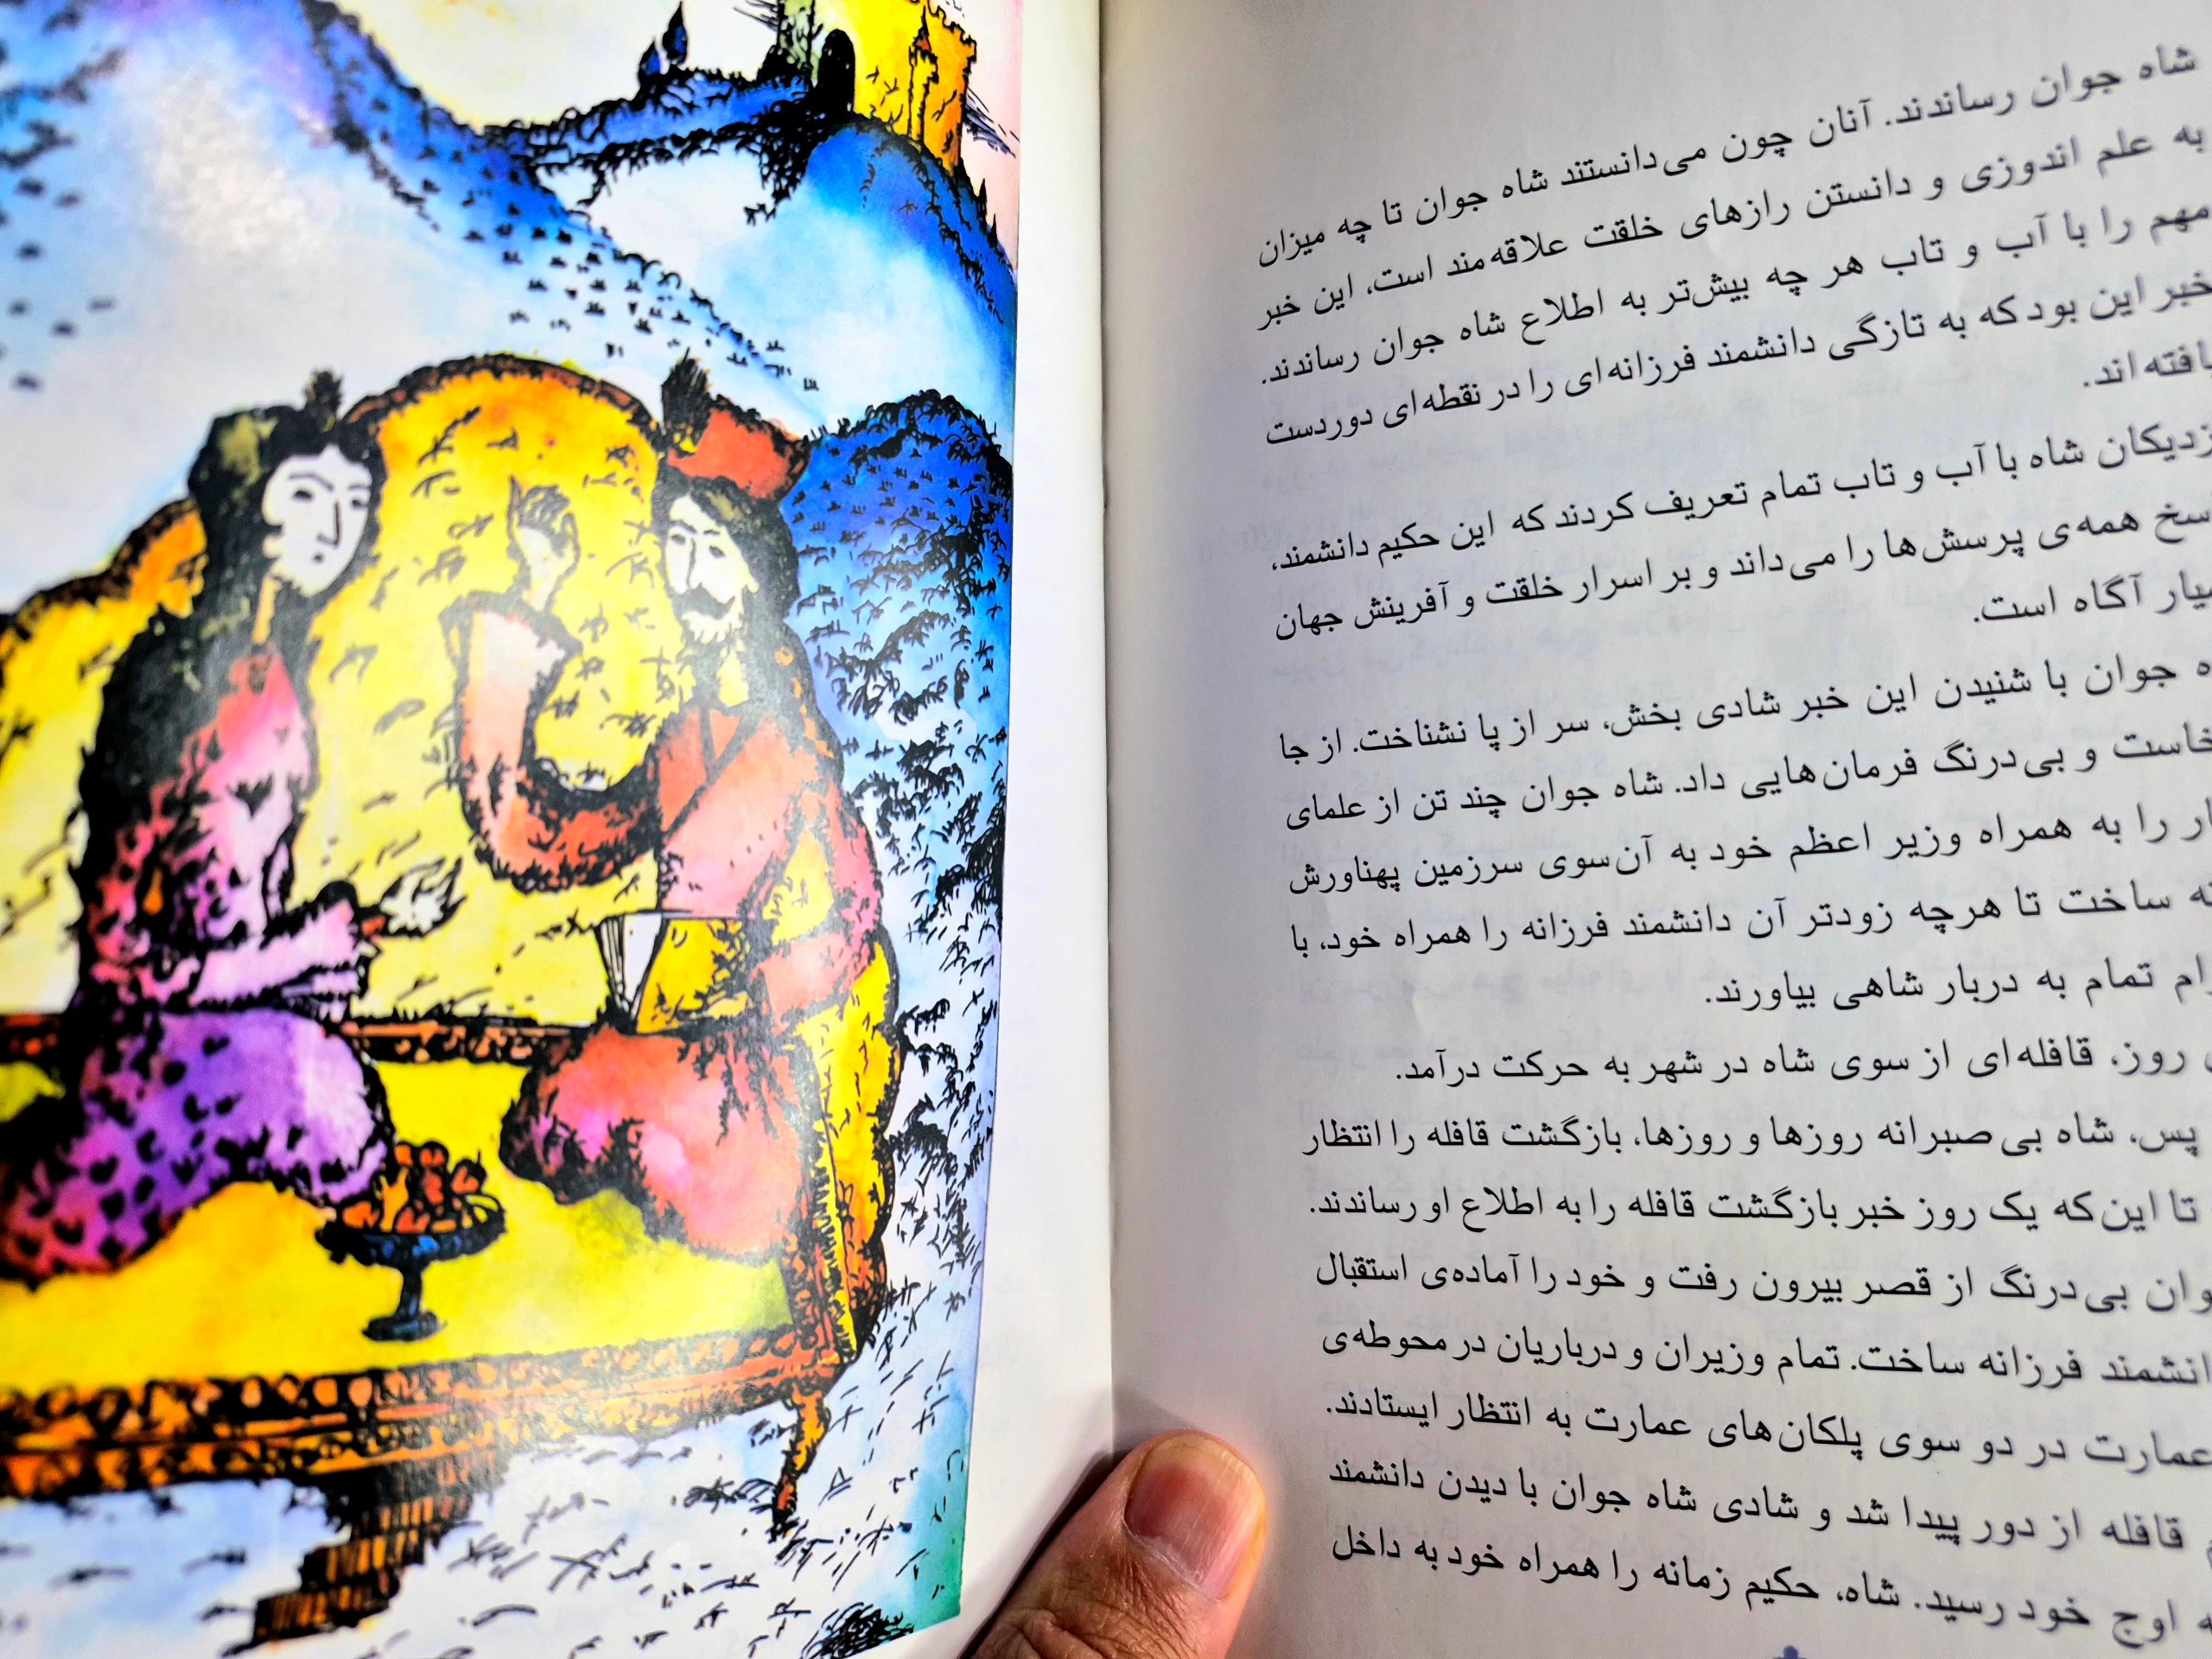 شاه جوان رساندند. آنان چون می‌دانستند شاه جوان تا چه میزان
به علم اندوزی و دانستن رازهای خلقت علاقه‌مند است، این خبر
مهم را با آب و تاب هر چه بیش‌تر به اطلاع شاه جوان رساندند.
خبر این بود که به تازگی دانشمند فرزانه‌ای را در نقطه‌ای دوردست
افته‌اند.
زدیکان شاه با آب و تاب تمام تعریف کردند که این حکیم دانشمند،
سخ همه‌ی پرسش‌ها را می‌داند و بر اسرار خلقت و آفرینش جهان
یار آگاه است.
ه جوان با شنیدن این خبر شادی بخش، سر از پا نشناخت. از جا
خاست و بی‌درنگ فرمان‌هایی داد. شاه جوان چند تن از علمای
ار را به همراه وزیر اعظم خود به آن‌سوی سرزمین پهناورش
نه ساخت تا هرچه زودتر آن دانشمند فرزانه را همراه خود، با
رام تمام به دربار شاهی بیاورند.
روز، قافله‌ای از سوی شاه در شهر به حرکت درآمد.
پس، شاه بی‌صبرانه روزها و روزها، بازگشت قافله را انتظار
تا این‌که یک روز خبر بازگشت قافله را به اطلاع او رساندند.
وان بی‌درنگ از قصر بیرون رفت و خود را آماده‌ی استقبال
انشمند فرزانه ساخت. تمام وزیران و درباریان در محوطه‌ی
عمارت در دو سوی پلکان‌های عمارت به انتظار ایستادند.
قافله از دور پیدا شد و شادی شاه جوان با دیدن دانشمند
ه اوج خود رسید. شاه، حکیم زمانه را همراه خود به داخل